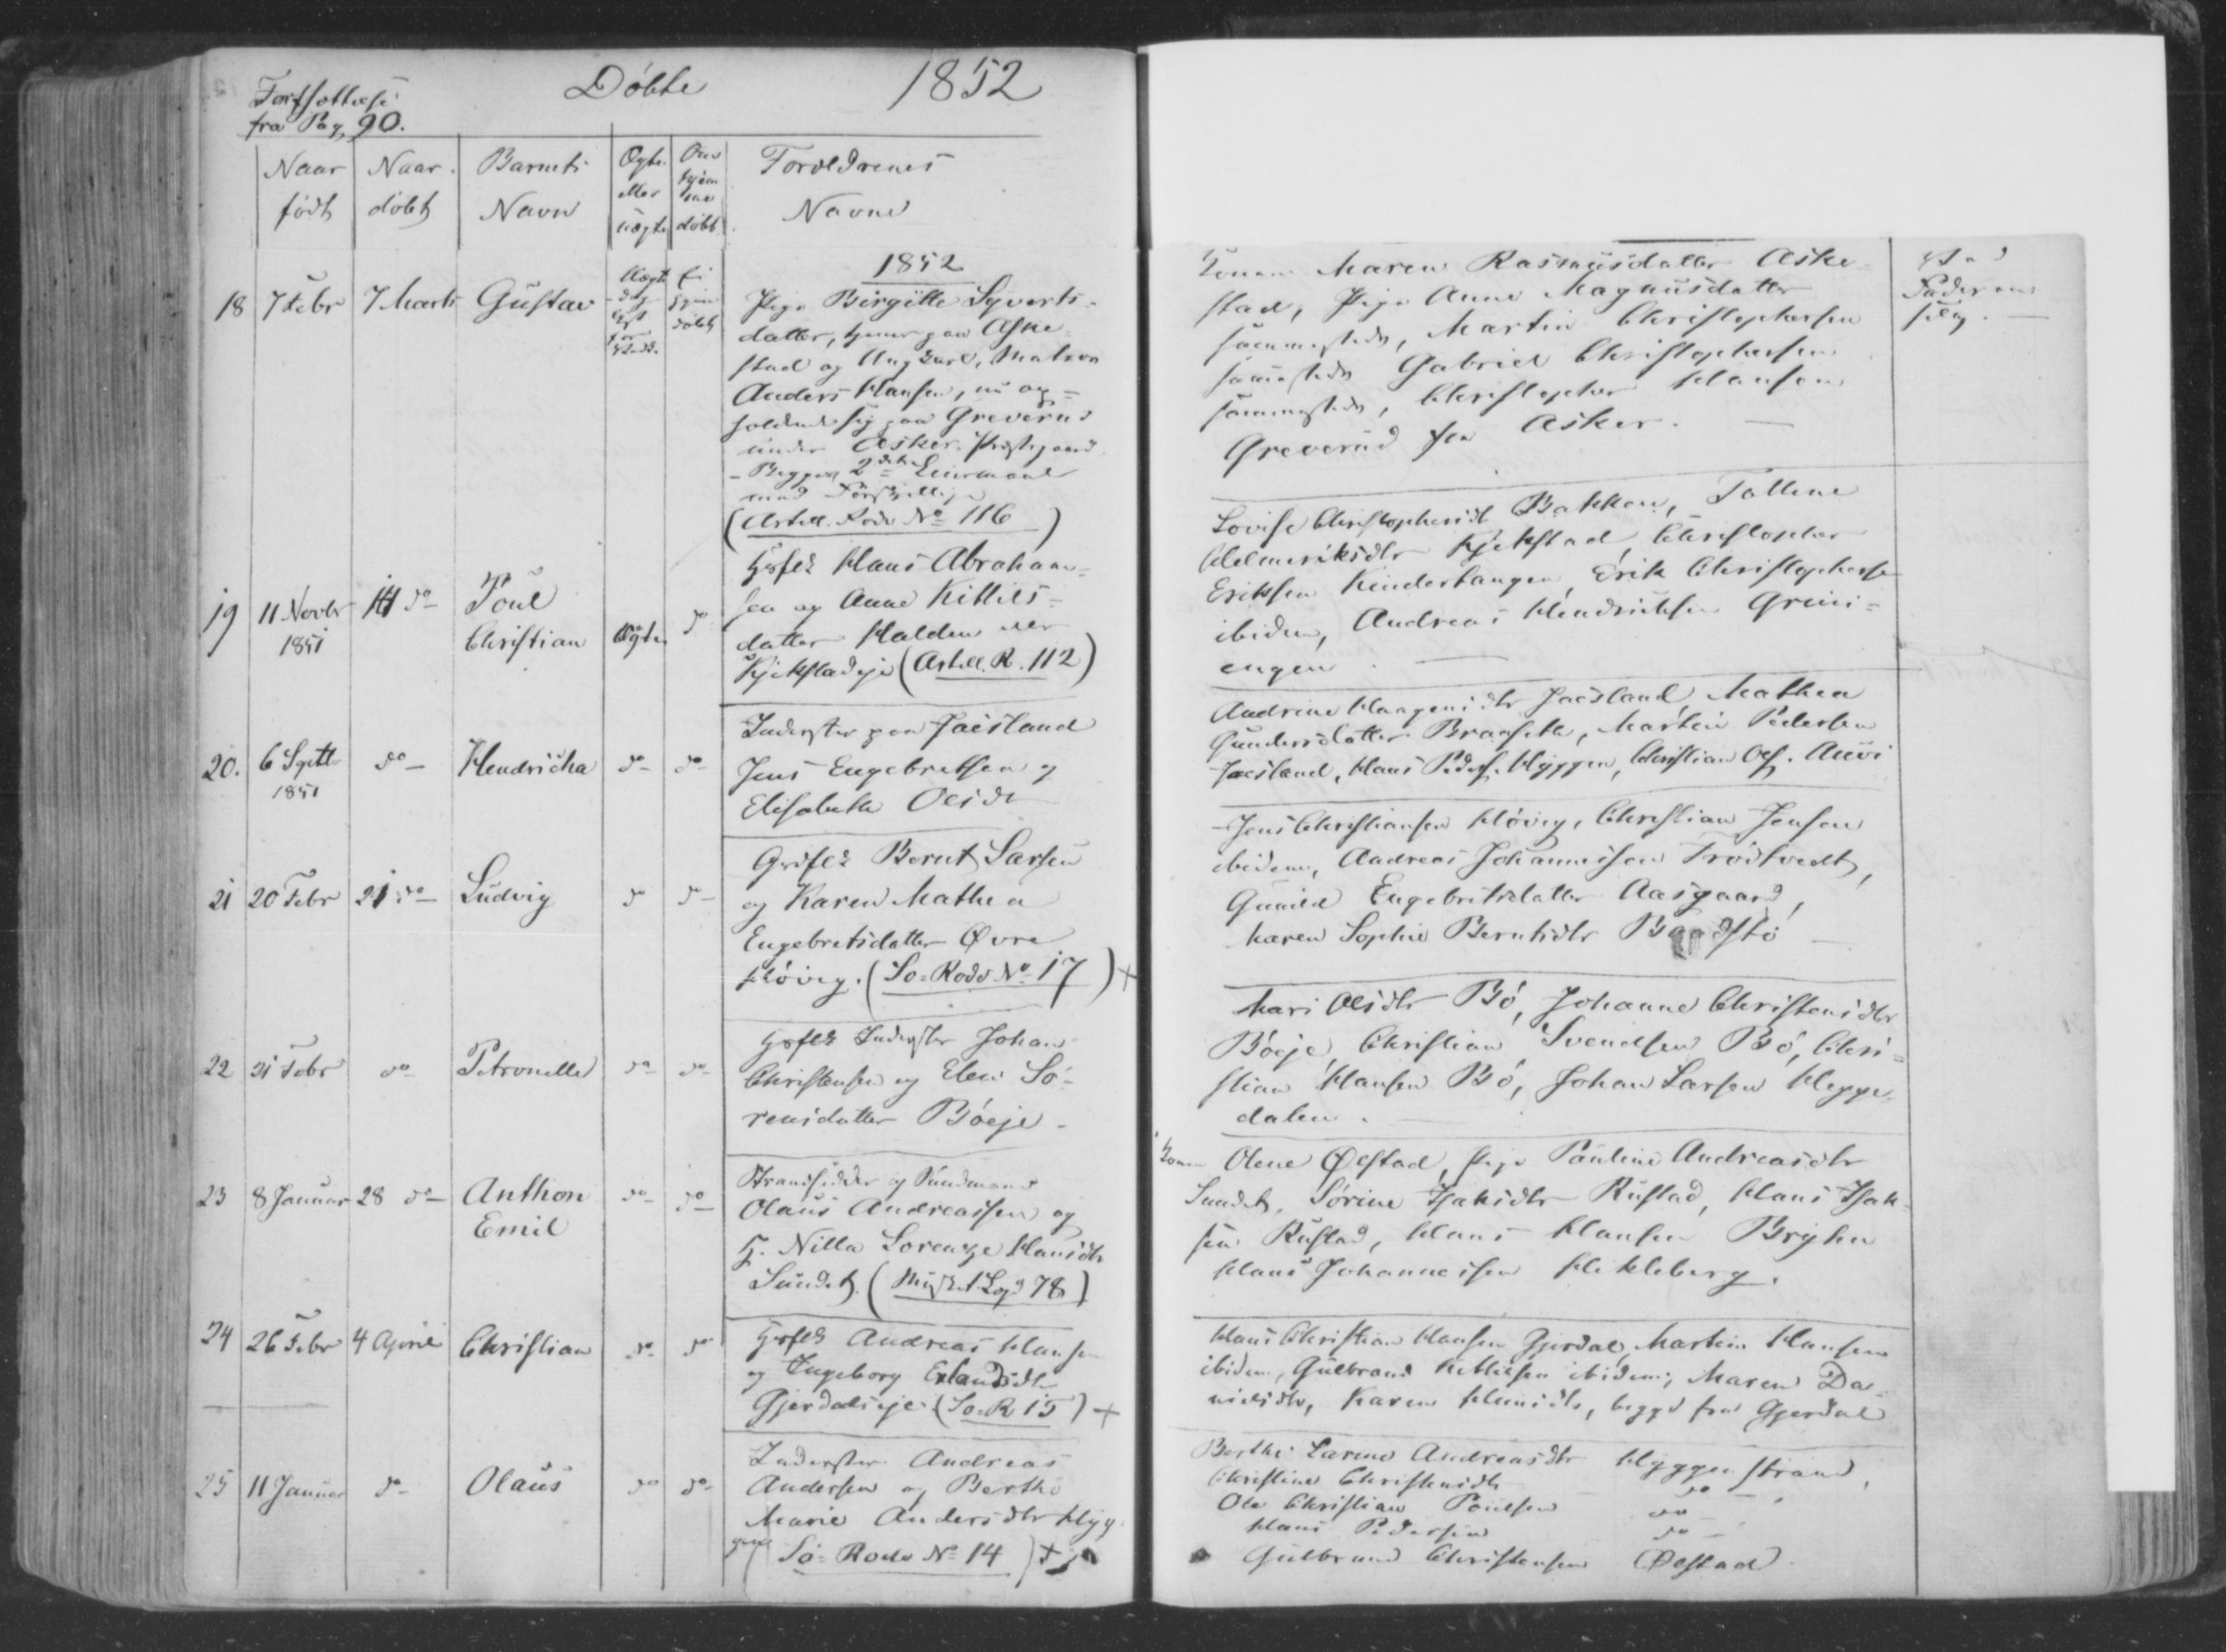 Fortsættelse
fra Pag. 90.
Døbte
1852
Naar
født
Naar
døbt
Barnets
Navn
Ægte
eller
uægte
Om
hjem
døbt
Forældrenes
Navne
1852
18 7 Febr 7 Marts Gustav
Uægte
Ei
hjem
døbt
Pige Birgitte Syverts-
datter, tjener paa Aske-
stad og Ungkarl, Matros
Anders Hansen, nu op-
holdende sig paa Greverud
under Asker Præstegaard
- Begges 2det Leiermaal
med Forskjellige
(Artill. Rode No 116)
19 11 Novbr 1851 14 do Poul Christian Ægte do
Hans Abraham-
sen og Anne Kittils-
datter Halden
Kjekstadeje (Artill. R. 112)
20. 6 Septb 1851 do Hendricha do do
Inderster paa Jaesland
Jens Engebretsen og
Elisabeth Olsdr
21 20 Febr 21 do Ludvig do do
Gaardfolk Bernt Larsen
og Karen Mathea
Engebretsdatter Øvre
Høvig. (So-Rode No 17) +
22 21 Febr do Petronelle do do
Inderster Johan
Christensen og Elen Sö-
rensdatter Böeje
23 8 Januar 28 do Anthon Emil do do
Strandsidder og Sundmand
Olaus Andreassen og
H. Nilla Lorentze Hansdtr
Sundet. (78)
24 26 Febr 4 April Christian do do
Andreas Hansen
og Ingeborg Erlandsdtr
Gjerdaleje (So. R 15) +
25 11 Januar do Olaus do do
Inderster Andreas
Andersen og Berthe
Marie Andersdtr Hyg-
gen (So-Rode No 14) +
Konen Maren Rasmusdatter Aske-
stad, Pige Anne Magnusdatter
sammesteds, Martin Christophersen
sammesteds Gabriel Christophersen
sammesteds, Christopher Hansen
Greverud fra Asker.
Faderen
selv.
Lovise Christophersdt Bakken, Tolline
Helmeriksdtr Kjekstad, Christopher
Eriksen Kinderhangen, Erik Christophersen
ibidem, Andreas Hendriksen Grini-
engen
Andrine Haagensdtr Jaesland, Mathea
Gundersdatter Braaset, Martin Pedersen
Jaesland, Hans Peders. Hyggen, Christian Ols.
Jens Christiansen Høvig, Christian Jensen
ibidem, Andreas Johannesen Trødtvedt,
Gunild Engebretsdatter Aasgaard,
Karen Sophie Berntsdtr
Mari Olsdtr Bö, Johanne Christensdtr
Böeje, Christian Svendsen Bö, Chri-
stian Hansen Bö, Johan Larsen Hegge-
dalen.
Konen Olene Øestad, Pige Pauline Andreasdtr
Sundet, Sörine Isaksdtr Rustad, Hans Isak-
sen Rustad, Hans Hansen Bryhn
Hans Johannesen Hekleberg.
Hans Christian Hansen Gjerdal, Martin Hansen
ibidem, Gulbrand Kittilsen ibidem, Maren Da-
nielsdtr, Karen, begge fra Gjerdal
Berthe Larine Andreasdtr Hyggenstrand,
Christine Christensdtr do
Ole Christian Poulsen do
Hans Pedersen do
Gulbrand Christensen Øestad.